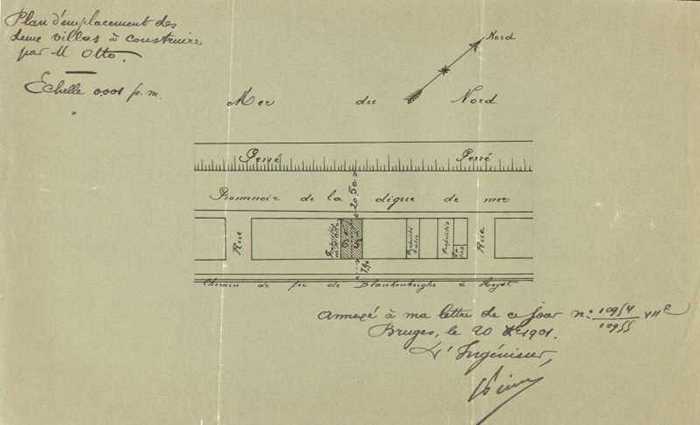 Plan d'emplacement des
deux villas à construire
par M Otto.
Echelle 0.001 p. m.
Nord
Mer du Nord
Perré Perré
Promenoir de la digue de mer
20.50
Rue Rue
7.90
Chemin de fer de Blankenberghe à Heyst
Annexé à ma lettre de ce jour n:
Bruges, le 20 1901.
L'Ingénieur,